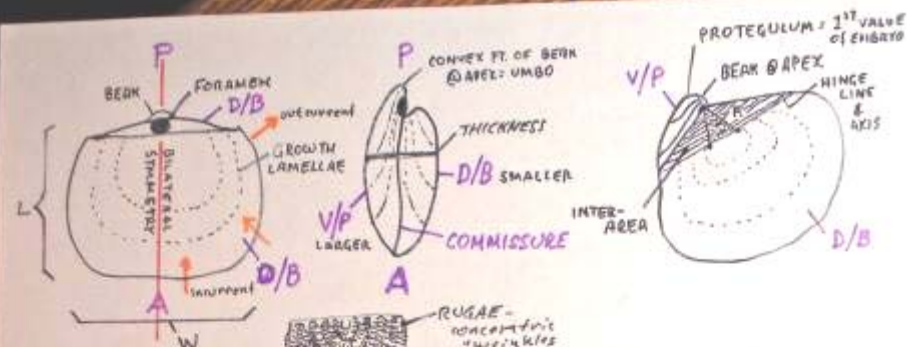 P
BEAK
FORAMEN
D/B
outcurrent
GROWTH
LAMELLAE
BILATERAL
SYMMETRY
L
D/B
incurrent
A
W
P
CONVEX PT. OF BEAK
@ APEX = UMBO
THICKNESS
D/B SMALLER
V/P
LARGER
COMMISSURE
A
RUGAE -
concentric
wrinkles
PROTEGULUM = 1ST VALVE
of EMBRYO
V/P
BEAK @ APEX
HINGE
LINE
&
AXIS
INTER-
AREA
D/B